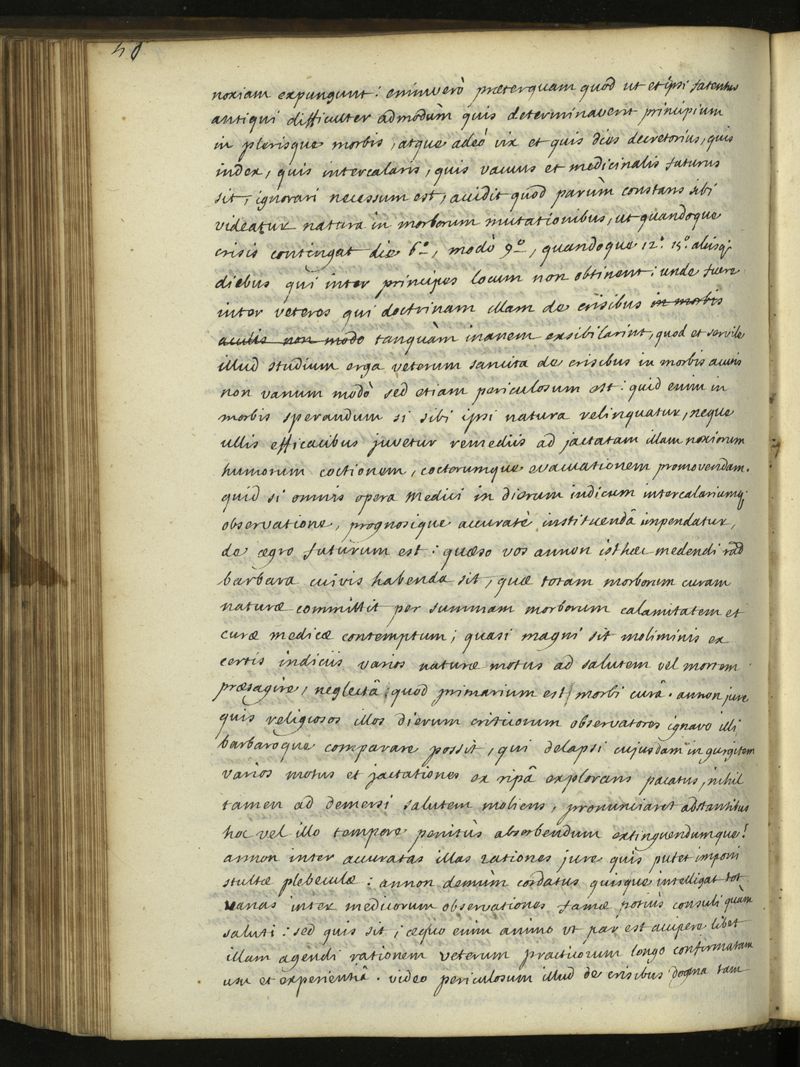 noxiam expungunt: enimverò præterquam quod ut et ipsi fatentur
antiqui difficulter admodùm quis determinaverit principium
in plerisque morbis, atque adeò vix et quis dies decretorius, quis
index, quis intercalaris, quis vacuus et medicinalis futurus
sit, ignorari necessum est, accidit quod parùm constans sibi
videatur natura in morborum mutationibus, ut quandoque
crisis contingat die 6º, modò 9º, quandoque 12º. 15º. aliisq;
diebus qui inter principes locum non obtinent: unde fuere
inter veteres qui doctrinam illam de crisibus in morbis
acutis non modo tanquàm inanem exsibilarint, quod et servile
illud studium erga veterum sancita de crisibus in morbis acutis
non vanum modò sed etiam periculosum est: quid enim in
morbis sperandum si sibi ipsi natura relinquatur, neque
ullis efficacibus juvetur remediis ad jactatam illam noxiorum
humorum coctionem, coctorumque evacuationem promovendam.
quid si omnis opera Medici in dierum indicum intercalariumq;
observatione, prognosique accuratè instituendâ impendatur,
de ægro futurum est: quæso vos annon isthæc medendi rãõ
barbara cuivis habenda sit, quæ totam morborum curam
naturæ committit per summam morborum calamitatem et
curæ medicæ contemptum; quasi magni sit moliminis ex
certis indiciis varios naturæ motus ad salutem vel mortem
præsagire, neglectâ (quod primarium est) morbi curâ. annon jure
quis religiosos illos dierum criticorum observatores ignavo illi
barbaroque comparare possit, qui delapsi cujusdam in gurgitem
varios motus et jactationes ex ripâ explorans pacatus, nihil
tamen ad demersi salutem moliens, pronunciaret adstantibus
hoc vel illo tempore penitùs absorbendum extinguendumque!
annon inter accuratas illas rationes jure quis putet imponi
stultæ plebeculæ: annon demùm cordatus quisque intelligat tot
vanas inter medicorum observationes famæ potius consuli quàm
saluti: sed quis sit, æquo enim animo ut par est accipere libet
illam agendi rationem veterum practicorum longo confirmatam
usu et experientiâ. video periculosum illud de crisibus dogma tam